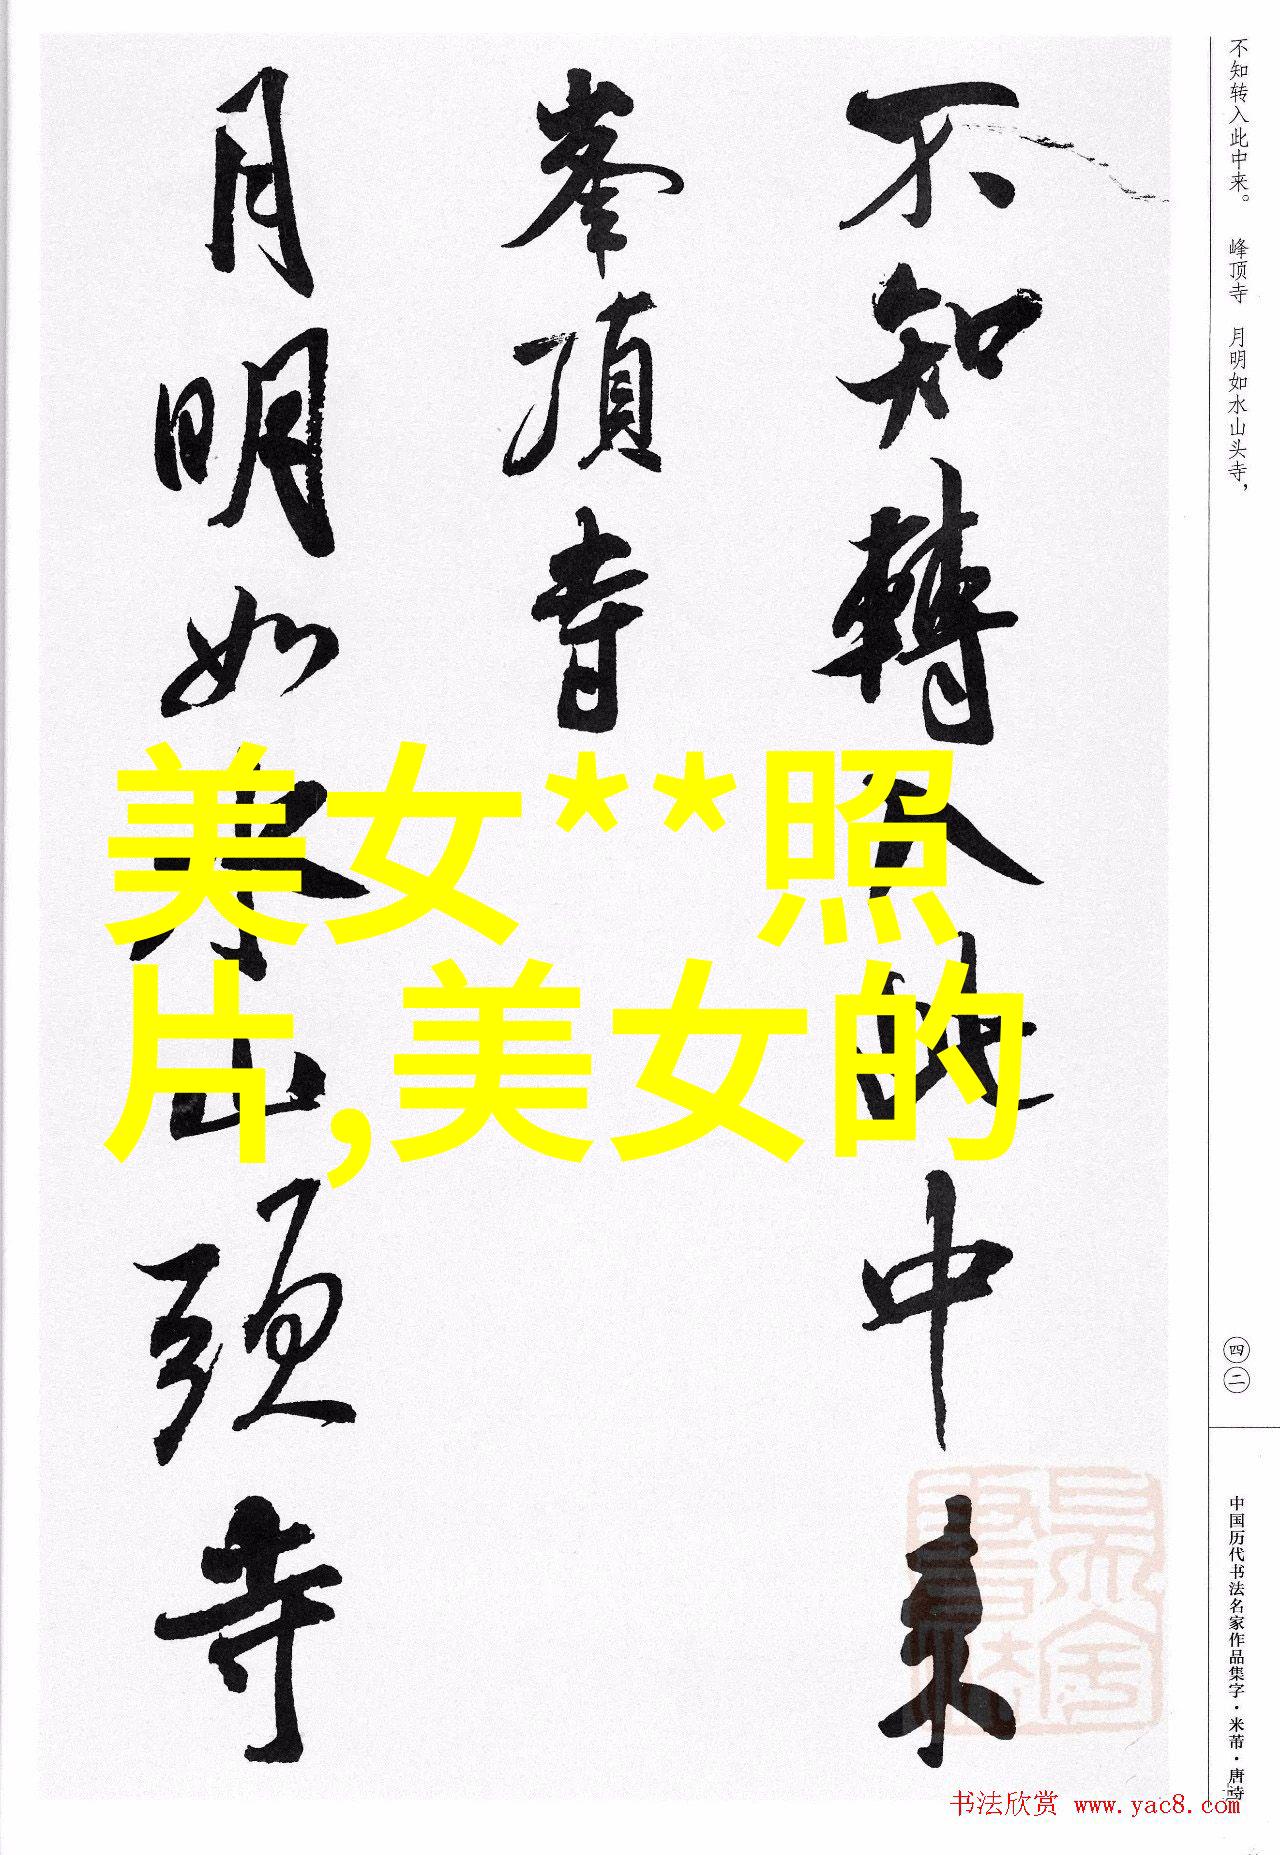 不知转入此中来。 峰顶寺 月明如水山头寺，
不知轉入此中来
峯頂寺
月明如水山頭寺
美女**照
片,美女的
四二
中国历代书法名家作品集字·米芾·唐诗
书法欣赏 www.yac8.com